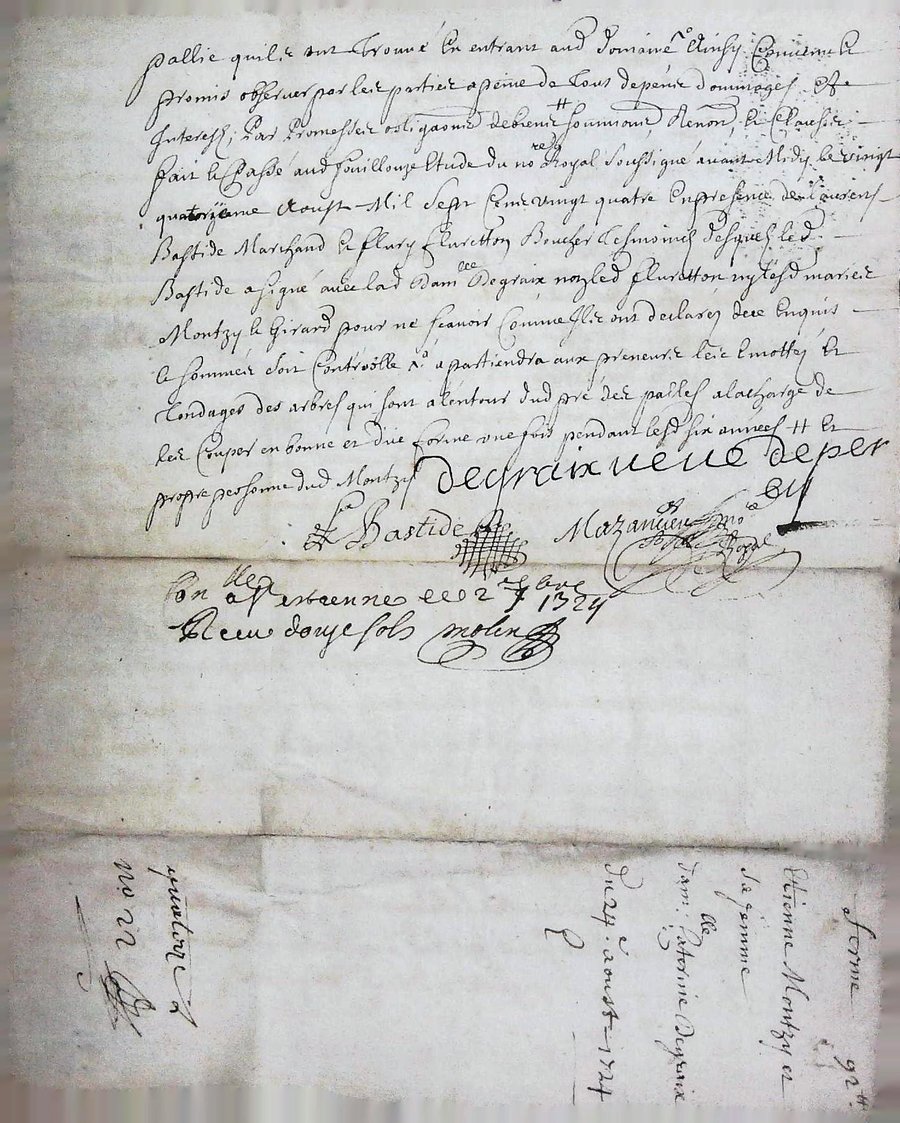 pallie quils ont trouvé en entrant aud domaine Ainsy Convenu et
promis observer par les parties a peine de tous depens dommages et
Interests, Par Promesses obligaōns de biens # soumions Renons, et Clauses
fait et Passé aud fouillouze Etude du nore Royal soussigné avant Midy le vingt
quatorieme Aoust Mil Sept Cens vingt quatre En presence de Laurens
Bastide Marchand et fleury fluretton Boucher tesmoins desquels led
Bastide a signé avec lad damlle Degraix non led fluretton ny lesd mariés
Montzy et Girard pour ne scavoir Comme Ils ont declaré de ce Enquis
et sommés soit Controlle appartiendra aux preneurs les Emottes et
tondages des arbres qui sont a lentour dud pré des palles a la charge de
les Couper en bonne et due forme une fois pendant lesd six années # et
propre personne dud Montzy degraix veuve deper
ey
Bastide Mazancieu no
Royal
Con lle a St estienne le 2 7 bre 1724
Receu douze sols molin
ferme 92 tt
Etienne Montzy et
sa femme
damlle Caterine Degraix
du 24e aoust 1724
quatorze
no 22